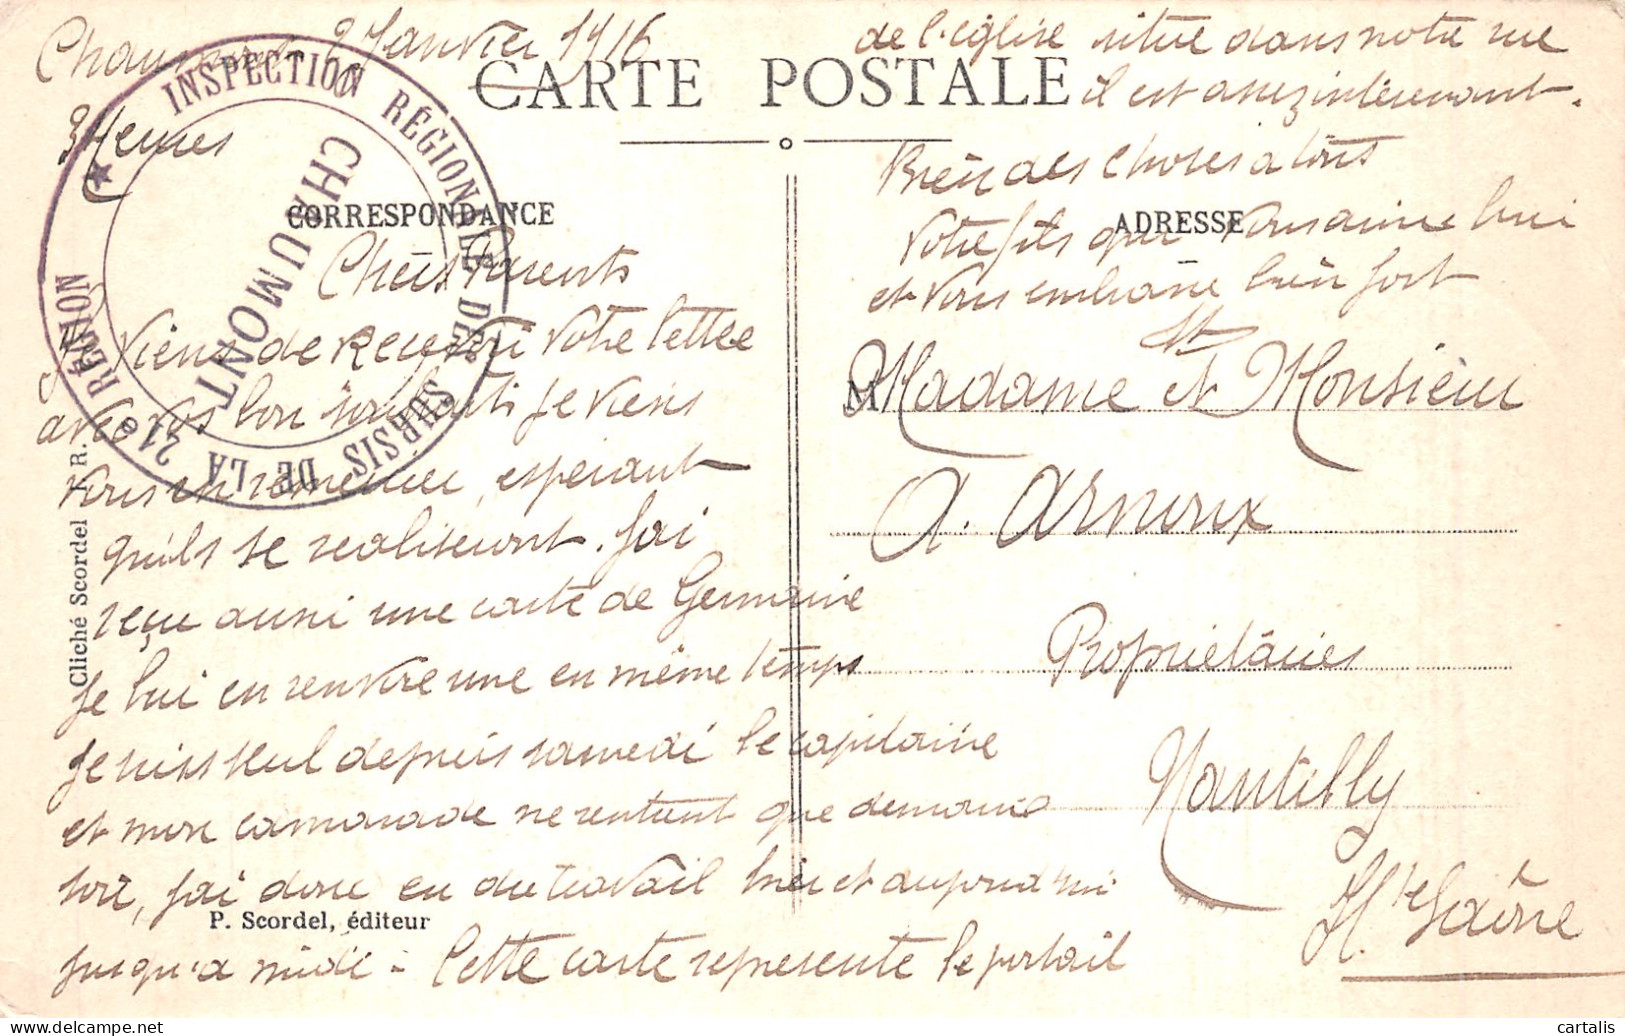 Chaumont 2 Janvier 1916
3 Heures
CARTE POSTALE
CORRESPONDANCE
Chers Parents
Je Viens de Recevoir Votre lettre
avec vos bon souhaits je viens
Vous en remercier, espérant
quils se realiseront. J'ai
reçu aussi une carte de Germaine
Je lui en renvoie une en même temps
Je suis seul depuis samedi le capitaine
et mon camarade ne rentrent que demain
soir, j'ai donc eu du travail hier et aujourd'hui
jusqu'a midi - Cette carte represente le portail
de l'église situé dans notre rue
il est assez intéressant.
Bien des choses a tous
Votre fils qui Vous aime bien
et Vous embrasse bien fort
ADRESSE
M
Madame et Monsieur
A. Arnoux
Propriétaires
Nantilly
Hte Saône
INSPECTION RÉGIONALE DES SURSIS DE LA 21e RÉGION
CHAUMONT
Cliché Scordel J. R.
P. Scordel, éditeur
cartalis
delcampe.net